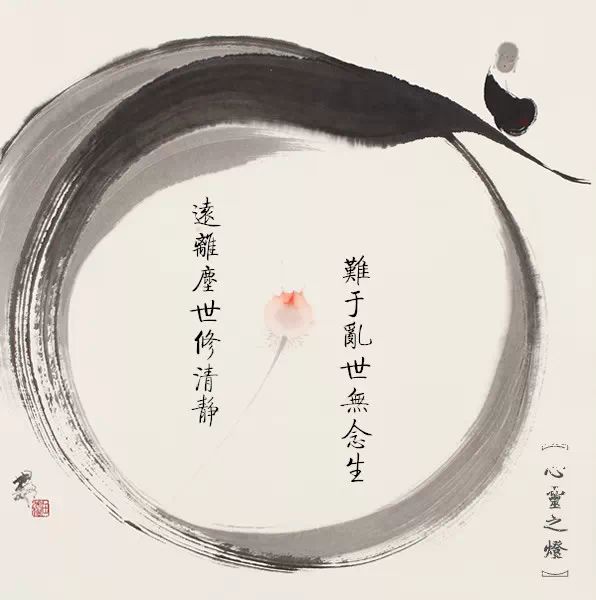 遠離塵世修清静
難于亂世無念生
〖心靈之燈〗